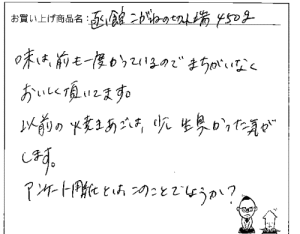 お買い上げ商品名：函館こがねの切れ端450g
味は、前も一度かっているのでまちがいなく
おいしく頂いてます。
以前の焼きあごは、少し生臭かった気が
します。
アンケート用紙とは、このことでしょうか？